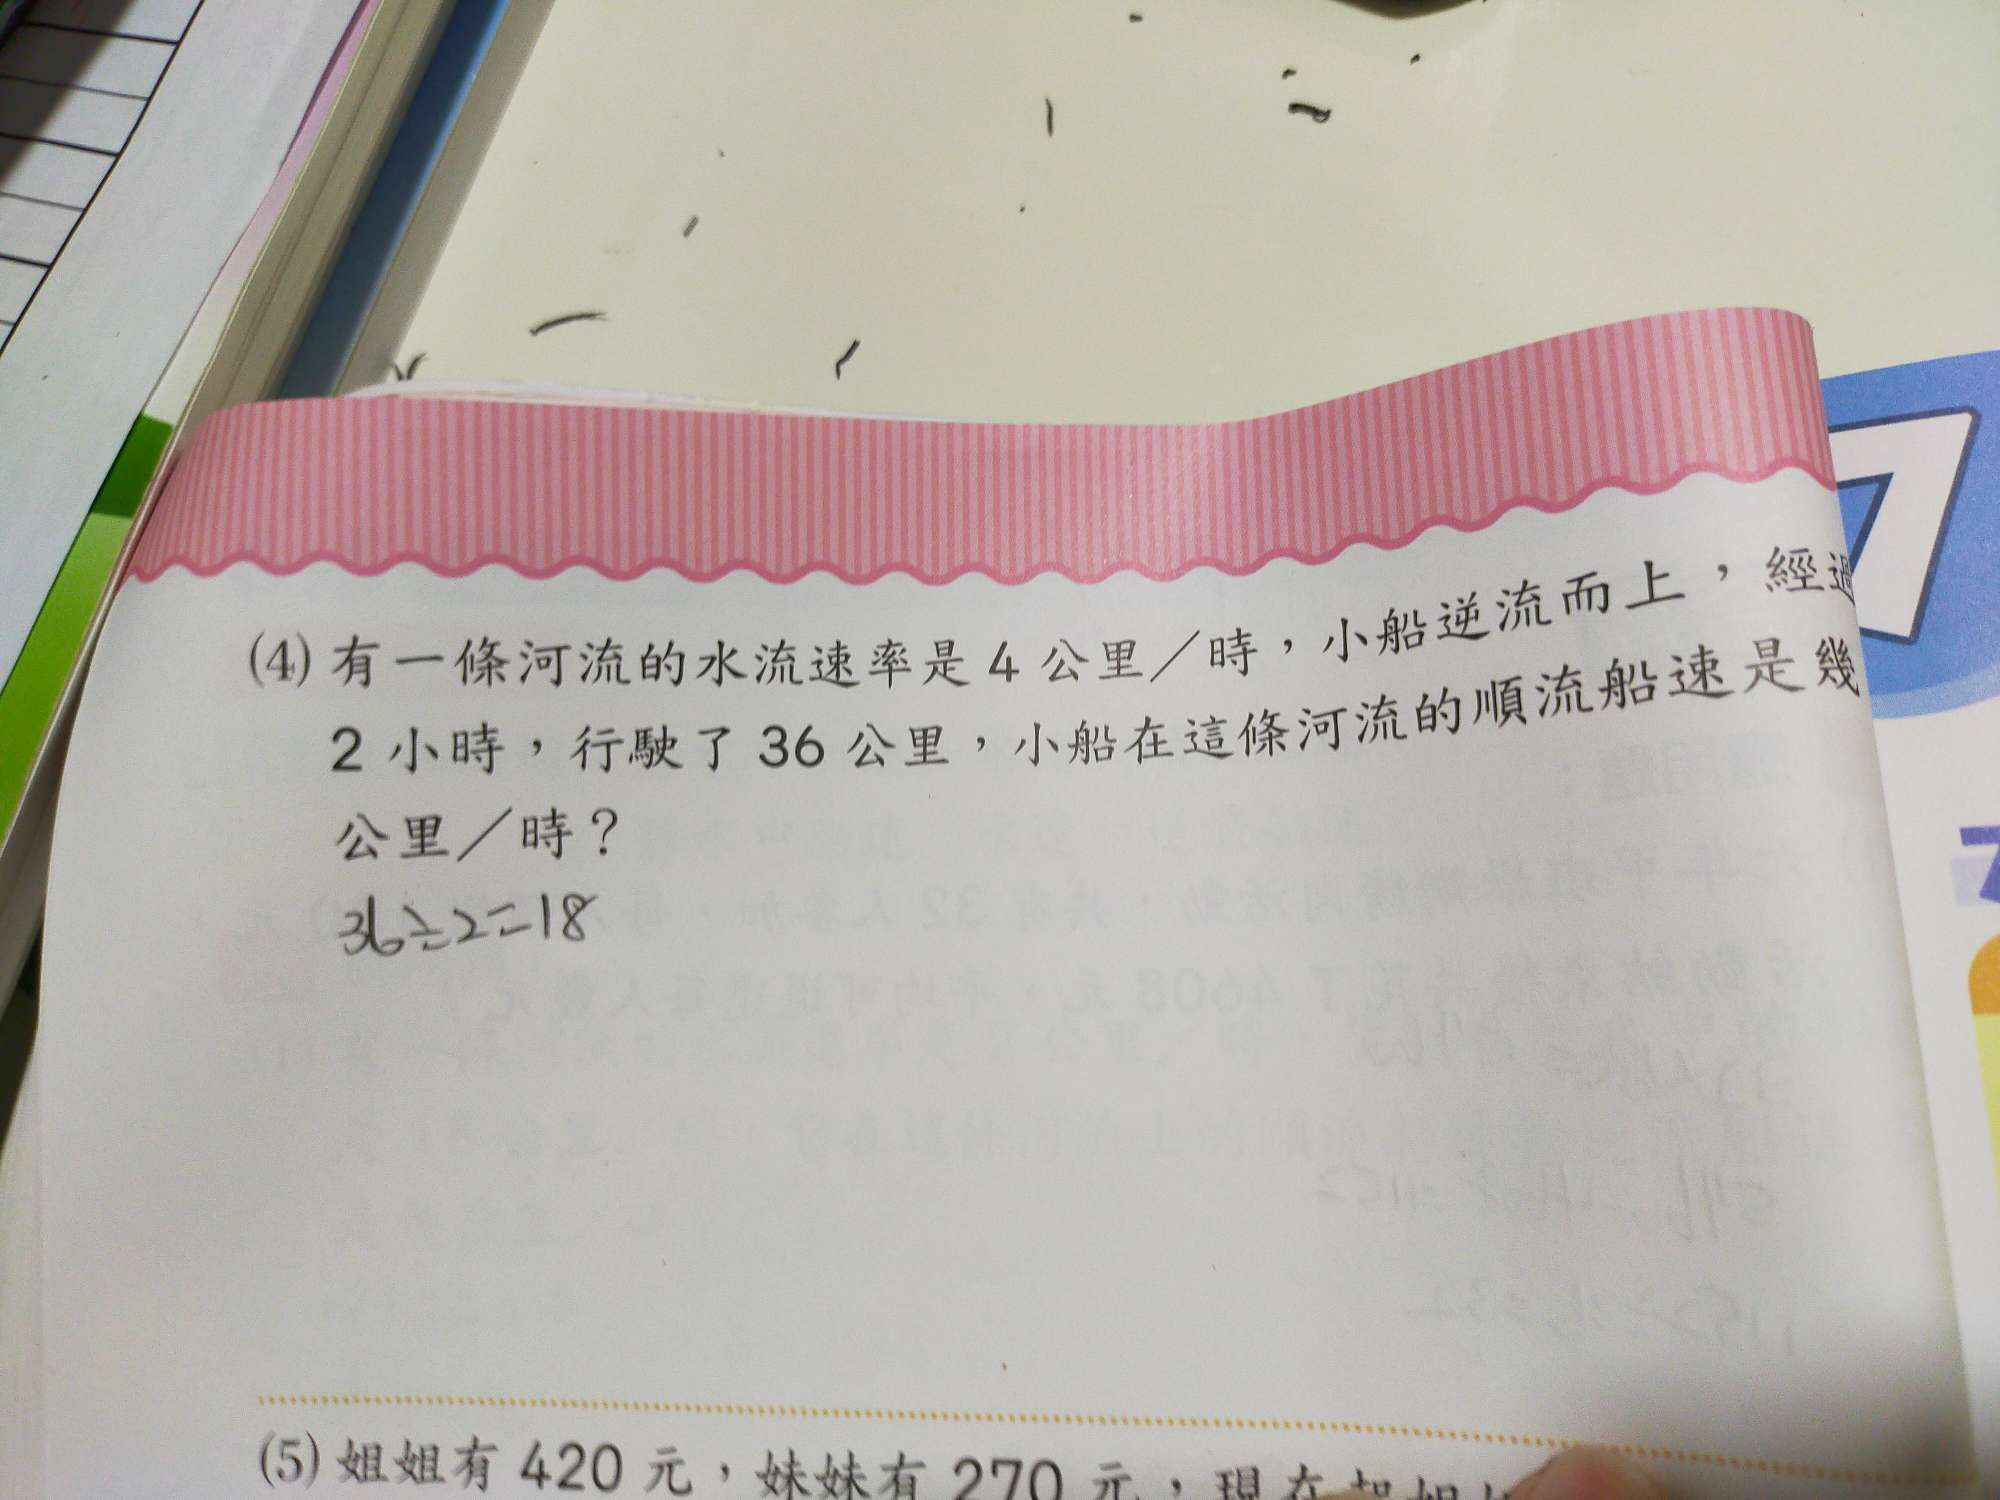 (4) 有一條河流的水流速率是 4 公里／時，小船逆流而上，經過
2 小時，行駛了 36 公里，小船在這條河流的順流船速是幾
公里／時？
36÷2=18
(5) 姐姐有 420 元，妹妹有 270 元，現在